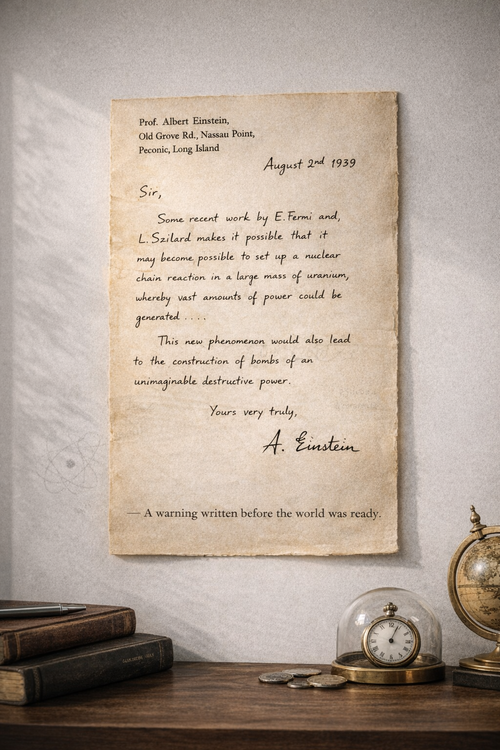 Prof. Albert Einstein,
Old Grove Rd., Nassau Point,
Peconic, Long Island
August 2nd 1939
Sir,
Some recent work by E. Fermi and,
L. Szilard makes it possible that it
may become possible to set up a nuclear
chain reaction in a large mass of uranium,
whereby vast amounts of power could be
generated ....
This new phenomenon would also lead
to the construction of bombs of an
unimaginable destructive power.
Yours very truly,
A. Einstein
— A warning written before the world was ready.